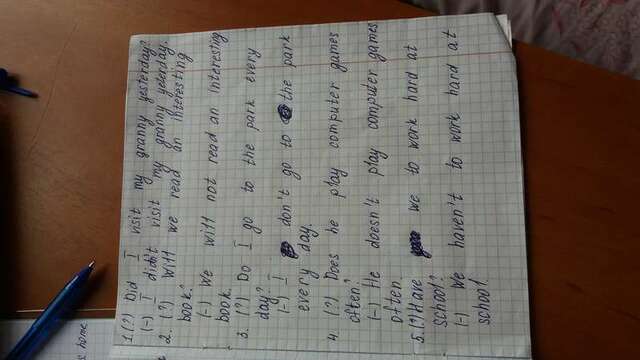 s home
1.(?) Did I visit my granny yesterday?
(-) I didn't visit my granny yeterday.
2. (?) Will we read an interesting
book?
(-) We will not read an interesting
book.
3. (?) Do I go to the park every
day?
(-) I don't go to the park
every day.
4. (?) Does he play computer games
often?
(-) He doesn't play computer games
often.
5.(?) Have we to work hard at
school?
(-) We haven't to work hard at
school.